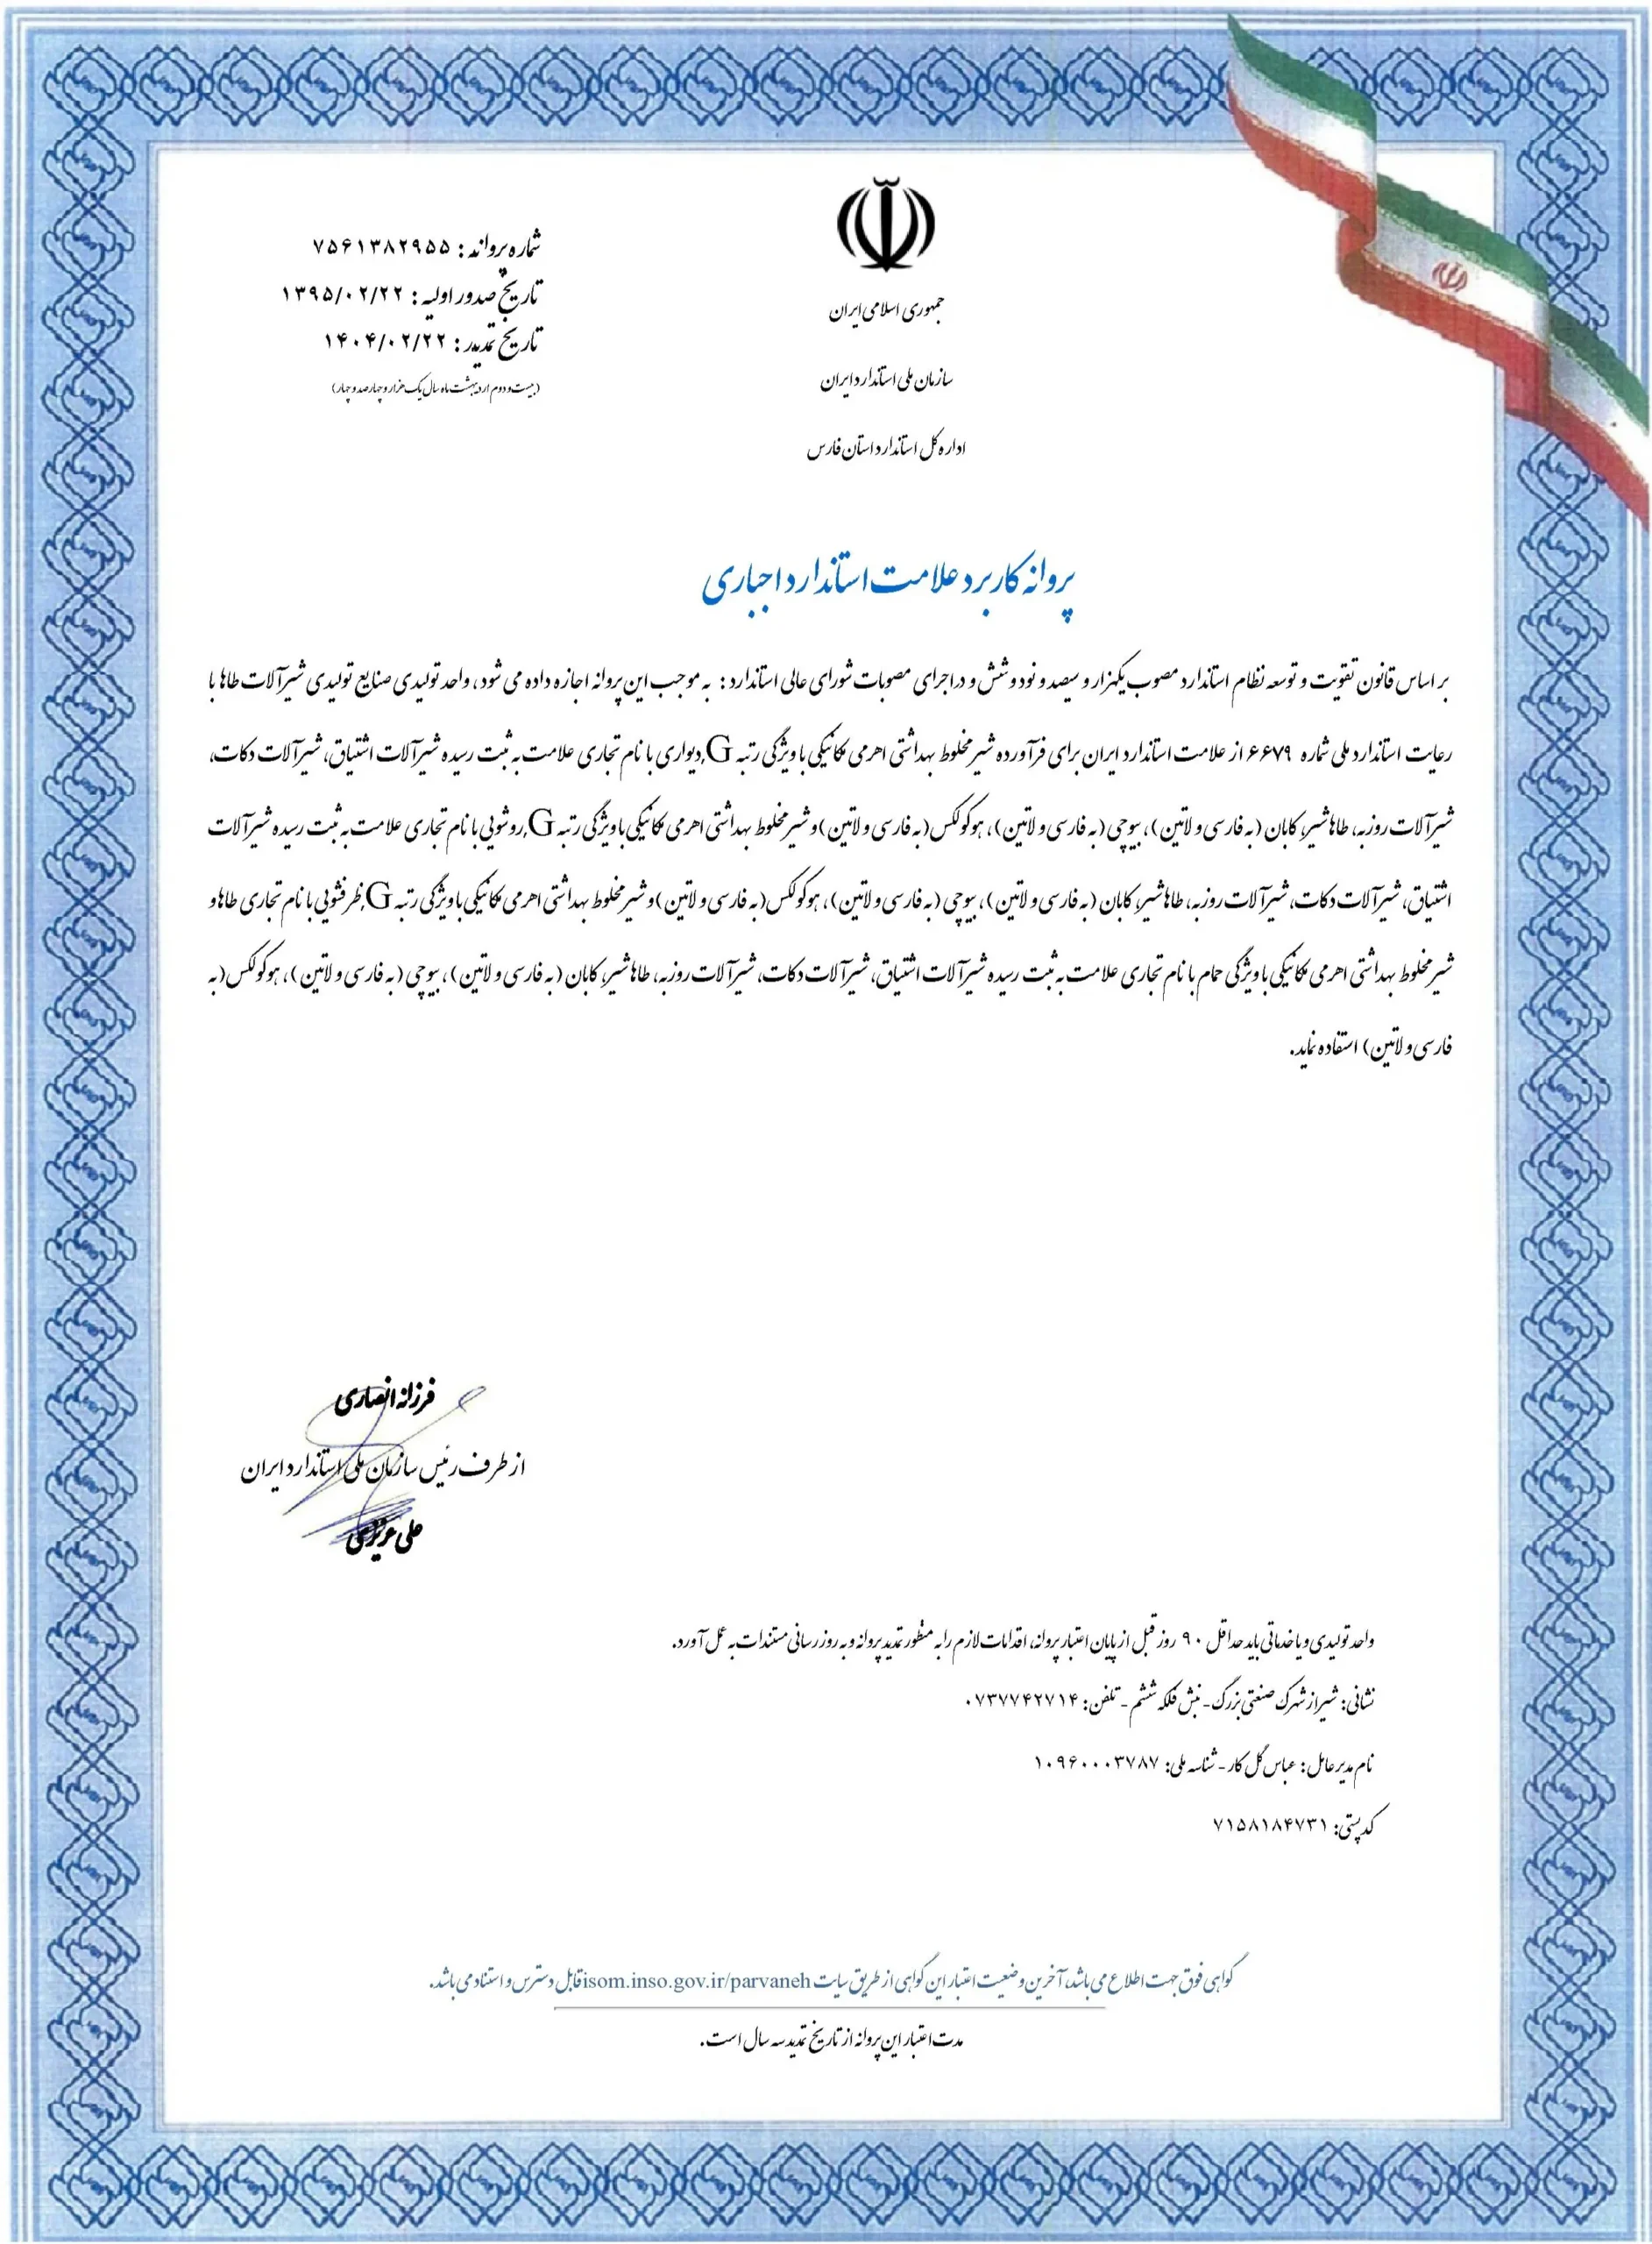 جمهوری اسلامی ایران
سازمان ملی استاندارد ایران
اداره کل استاندارد استان فارس
شماره پروانه : ۷۵۶۱۳۸۲۹۵۵
تاریخ صدور اولیه : ۱۳۹۵/۰۲/۲۲
تاریخ تمدید : ۱۴۰۴/۰۲/۲۲
(بیست و دوم اردیبهشت ماه سال یک هزار و چهارصد و چهار)
پروانه کاربرد علامت استاندارد اجباری
بر اساس قانون تقویت و توسعه نظام استاندارد مصوب یکهزار و سیصد و نود و شش و در اجرای مصوبات شورای عالی استاندارد : به موجب این پروانه اجازه داده می شود، واحد تولیدی صنایع تولیدی شیرآلات طاها با
رعایت استاندارد ملی شماره ۶۶۷۹ از علامت استاندارد ایران برای فرآورده شیر مخلوط بهداشتی اهرمی مکانیکی با ویژگی رتبه G,دیواری با نام تجاری علامت به ثبت رسیده شیرآلات اشتیاق، شیرآلات دکات،
شیرآلات روزبه، طاهاشیر، کابان (به فارسی و لاتین)، بیوجی (به فارسی و لاتین)، هوکولکس(به فارسی و لاتین) و شیر مخلوط بهداشتی اهرمی مکانیکی با ویژگی رتبه G,روشویی با نام تجاری علامت به ثبت رسیده شیرآلات
اشتیاق، شیرآلات دکات، شیرآلات روزبه، طاهاشیر، کابان (به فارسی و لاتین)، بیوجی (به فارسی و لاتین)، هوکولکس(به فارسی و لاتین) و شیر مخلوط بهداشتی اهرمی مکانیکی با ویژگی رتبه G,ظرفشویی با نام تجاری طاها و
شیر مخلوط بهداشتی اهرمی مکانیکی با ویژگی حمام با نام تجاری علامت به ثبت رسیده شیرآلات اشتیاق، شیرآلات دکات، شیرآلات روزبه، طاهاشیر، کابان (به فارسی و لاتین)، بیوجی (به فارسی و لاتین)، هوکولکس(به
فارسی و لاتین) استفاده نماید.
فرزانه انصاری
از طرف رئیس سازمان ملی استاندارد ایران
علی
واحد تولیدی و یا خدماتی باید حداقل ۹۰ روز قبل از پایان اعتبار پروانه، اقدامات لازم را به منظور تمدید پروانه و به روزرسانی مستندات به عمل آورد.
نشانی: شیراز شهرک صنعتی بزرگ - نبش فلکه ششم - تلفن: ۰۷۳۷۷۴۲۷۱۴
نام مدیر عامل : عباس گل کار - شناسه ملی: ۱۰۹۶۰۰۰۳۷۸۷
کد پستی: ۷۱۵۸۱۸۴۷۳۱
گواهی فوق جهت اطلاع می باشد، آخرین وضعیت اعتبار این گواهی از طریق سایت isom.inso.gov.ir/parvaneh قابل دسترس و استناد می باشد.
مدت اعتبار این پروانه از تاریخ تمدید سه سال است.